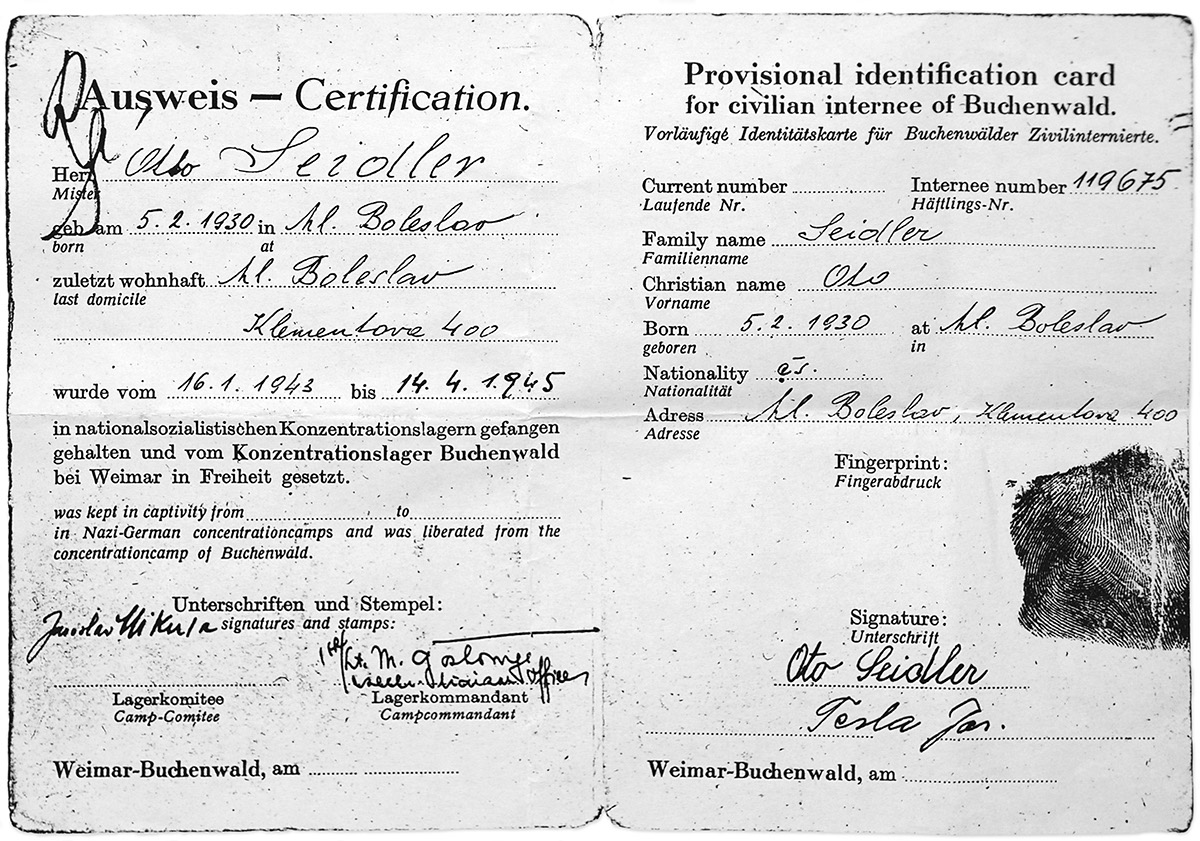 Ausweis — Certification.
Herr Oto Seidler
Mister
geb. am 5. 2. 1930 in Ml. Boleslav
born at
zuletzt wohnhaft Ml. Boleslav
last domicile
Klementova 400
wurde vom 16. 1. 1943 bis 14. 4. 1945
in nationalsozialistischen Konzentrationslagern gefangen
gehalten und vom Konzentrationslager Buchenwald
bei Weimar in Freiheit gesetzt.
was kept in captivity from to
in Nazi-German concentrationcamps and was liberated from the
concentrationcamp of Buchenwald.
Unterschriften und Stempel:
Jaroslav Mikula signatures and stamps:
Lt. M.
Officer
Lagerkomitee Lagerkommandant
Camp-Comitee Campcommandant
Weimar-Buchenwald, am
Provisional identification card
for civilian internee of Buchenwald.
Vorläufige Identitätskarte für Buchenwälder Zivilinternierte.
Current number Internee number 119675
Laufende Nr. Häftlings-Nr.
Family name Seidler
Familienname
Christian name Oto
Vorname
Born 5. 2. 1930 at Ml. Boleslav
geboren in
Nationality čs.
Nationalität
Adress Ml. Boleslav, Klementova 400
Adresse
Fingerprint:
Fingerabdruck
Signature:
Unterschrift
Oto Seidler
Tesla Jar.
Weimar-Buchenwald, am